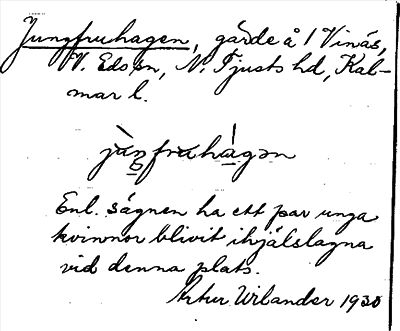 Jungfruhagen, gärde å 1 Vinäs,
V. Eds sn, N. Tjusts hd, Kal-
mar l.
jùŋfruhágən
Enl. sägnen ha ett par unga
kvinnor blivit ihjälslagna
vid denna plats.
Artur Wilander 1930